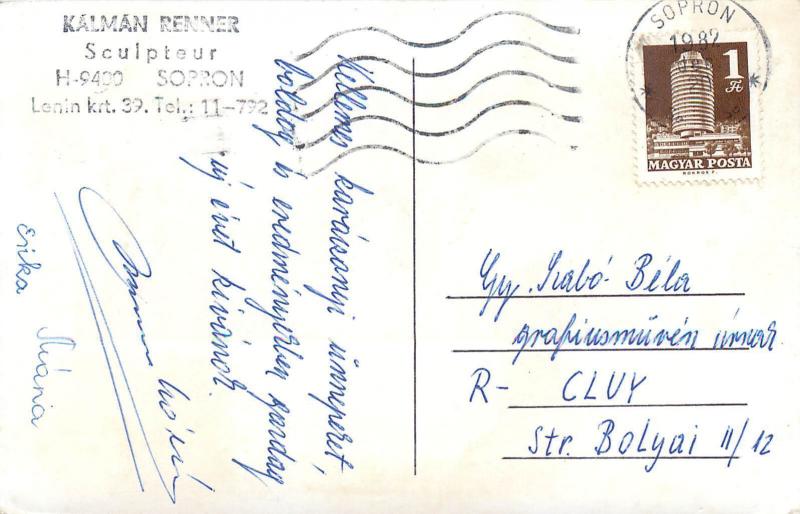 KÁLMÁN RENNER
Sculpteur
H-9400 SOPRON
Lenin krt. 39. Tel.: 11-792
Kellemes karácsonyi ünnepeket,
boldog és eredményekben gazdag
új évet kívánok
Erika Mária
SOPRON
1982
1 Ft
MAGYAR POSTA
Gy. Szabó Béla
grafikusművén úrnak
R- CLUY
Str. Bolyai 11/12